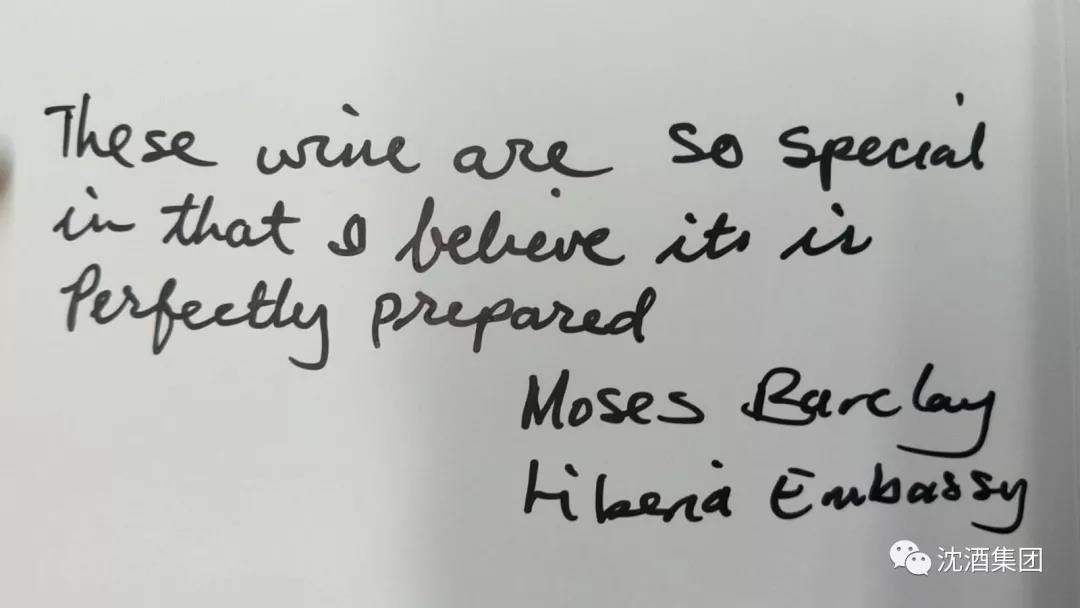 These wine are so special
in that I believe its is
Perfectly prepared
Moses Barclay
Liberia Embassy
沈酒集团